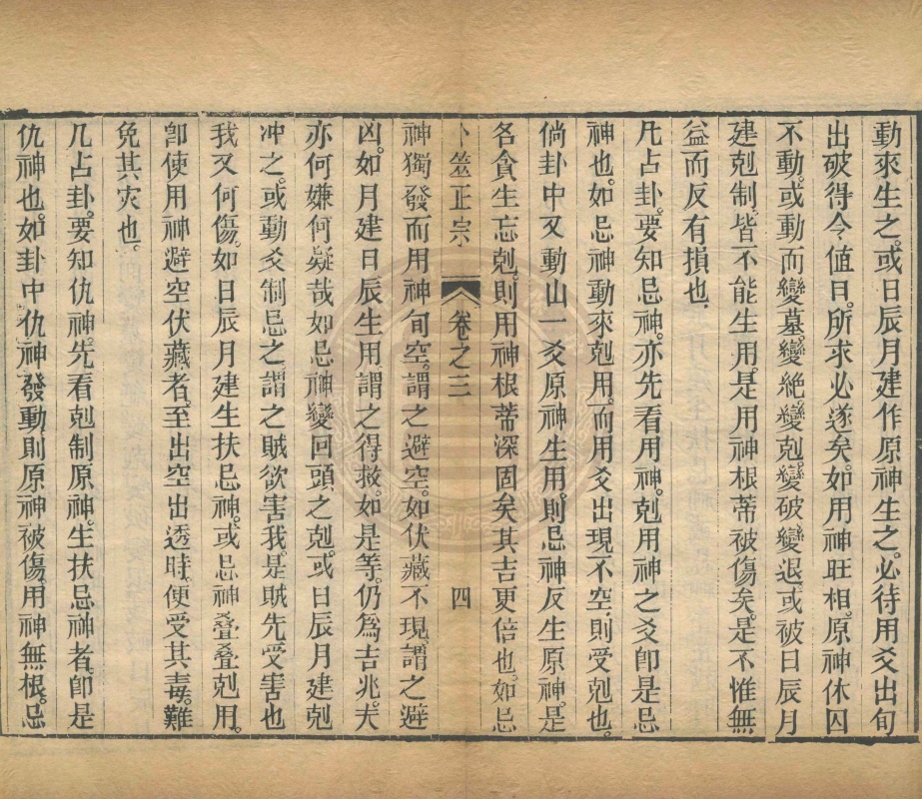 動來生之。或日辰月建作原神生之。必待用爻出旬
出破得令值日。所求必遂矣。如用神旺相。原神休囚
不動。或動而變墓變絕。變克變破變退。或被日辰月
建剋制。皆不能生用。是用神根蒂被傷矣。是不惟無
益而反有損也
凡占卦。要知忌神。亦先看用神。剋用神之爻卽是忌
神也。如忌神動來剋用。而用爻出現不空。則受剋也。
倘卦中又動出一爻原神生用。則忌神反生原神。是
各貪生忘剋。則用神根蒂深固矣。其吉更倍也。如忌
卜筮正宗 卷之三 四
神獨發而用神旬空。謂之避空。如伏藏不現。謂之避
凶。如月建日辰生用。謂之得救。如是等。仍爲吉兆。夫
亦何嫌何疑哉。如忌神變回頭之剋。或日辰月建剋
冲之。或動爻制忌之。謂之賊欲害我。是賊先受害也
我又何傷。如日辰月建生扶忌神。或忌神叠叠剋用。
卽使用神避空伏藏者。至出空出透時。便受其毒。難
免其灾也
凡占卦。要知仇神。先看剋制原神。生扶忌神者。卽是
仇神也。如卦中仇神發動。則原神被傷。用神無根。忌